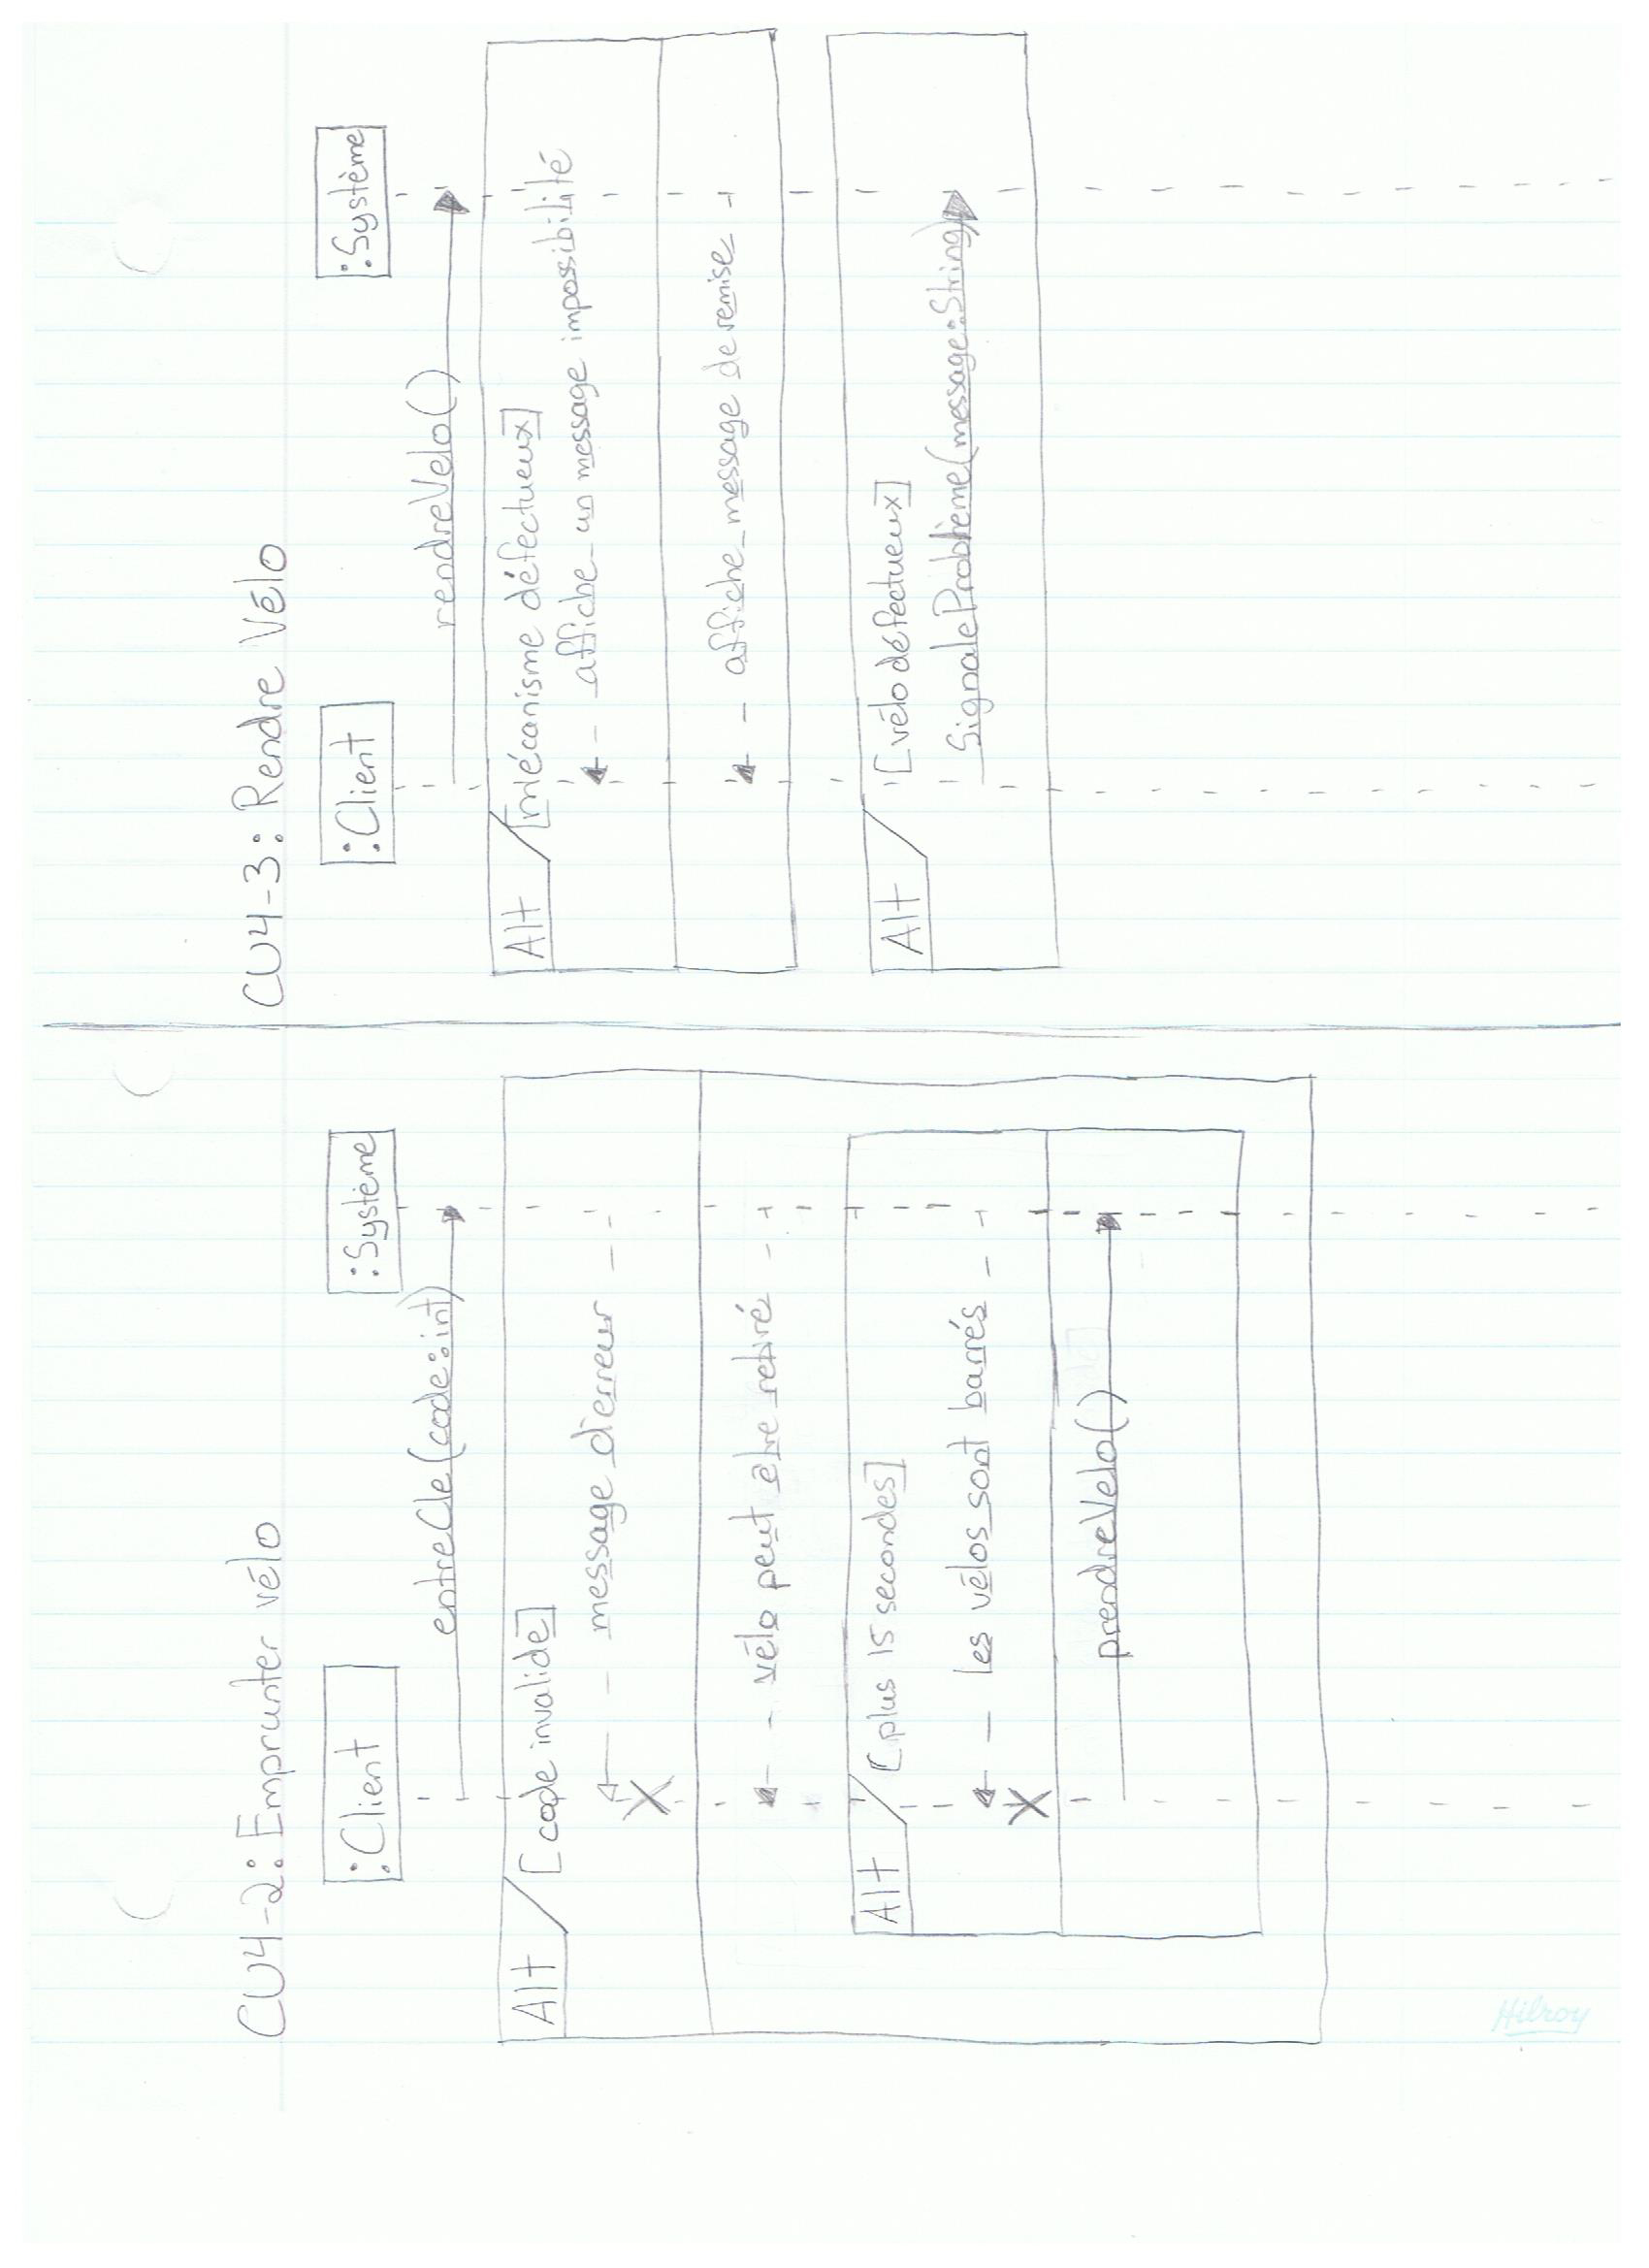 CU4-2: Emprunter vélo
:Client
:Système
entreCle(code:int)
Alt
[code invalide]
message d'erreur
X
vélo peut être retiré
Alt
[plus 15 secondes]
les vélos sont barrés
X
prendreVelo()
Hilroy
CU4-3: Rendre Vélo
:Client
:Système
rendreVelo()
Alt
[mécanisme défectueux]
affiche un message impossibilité
affiche message de remise
Alt
[vélo défectueux]
SignaleProblème(message:String)